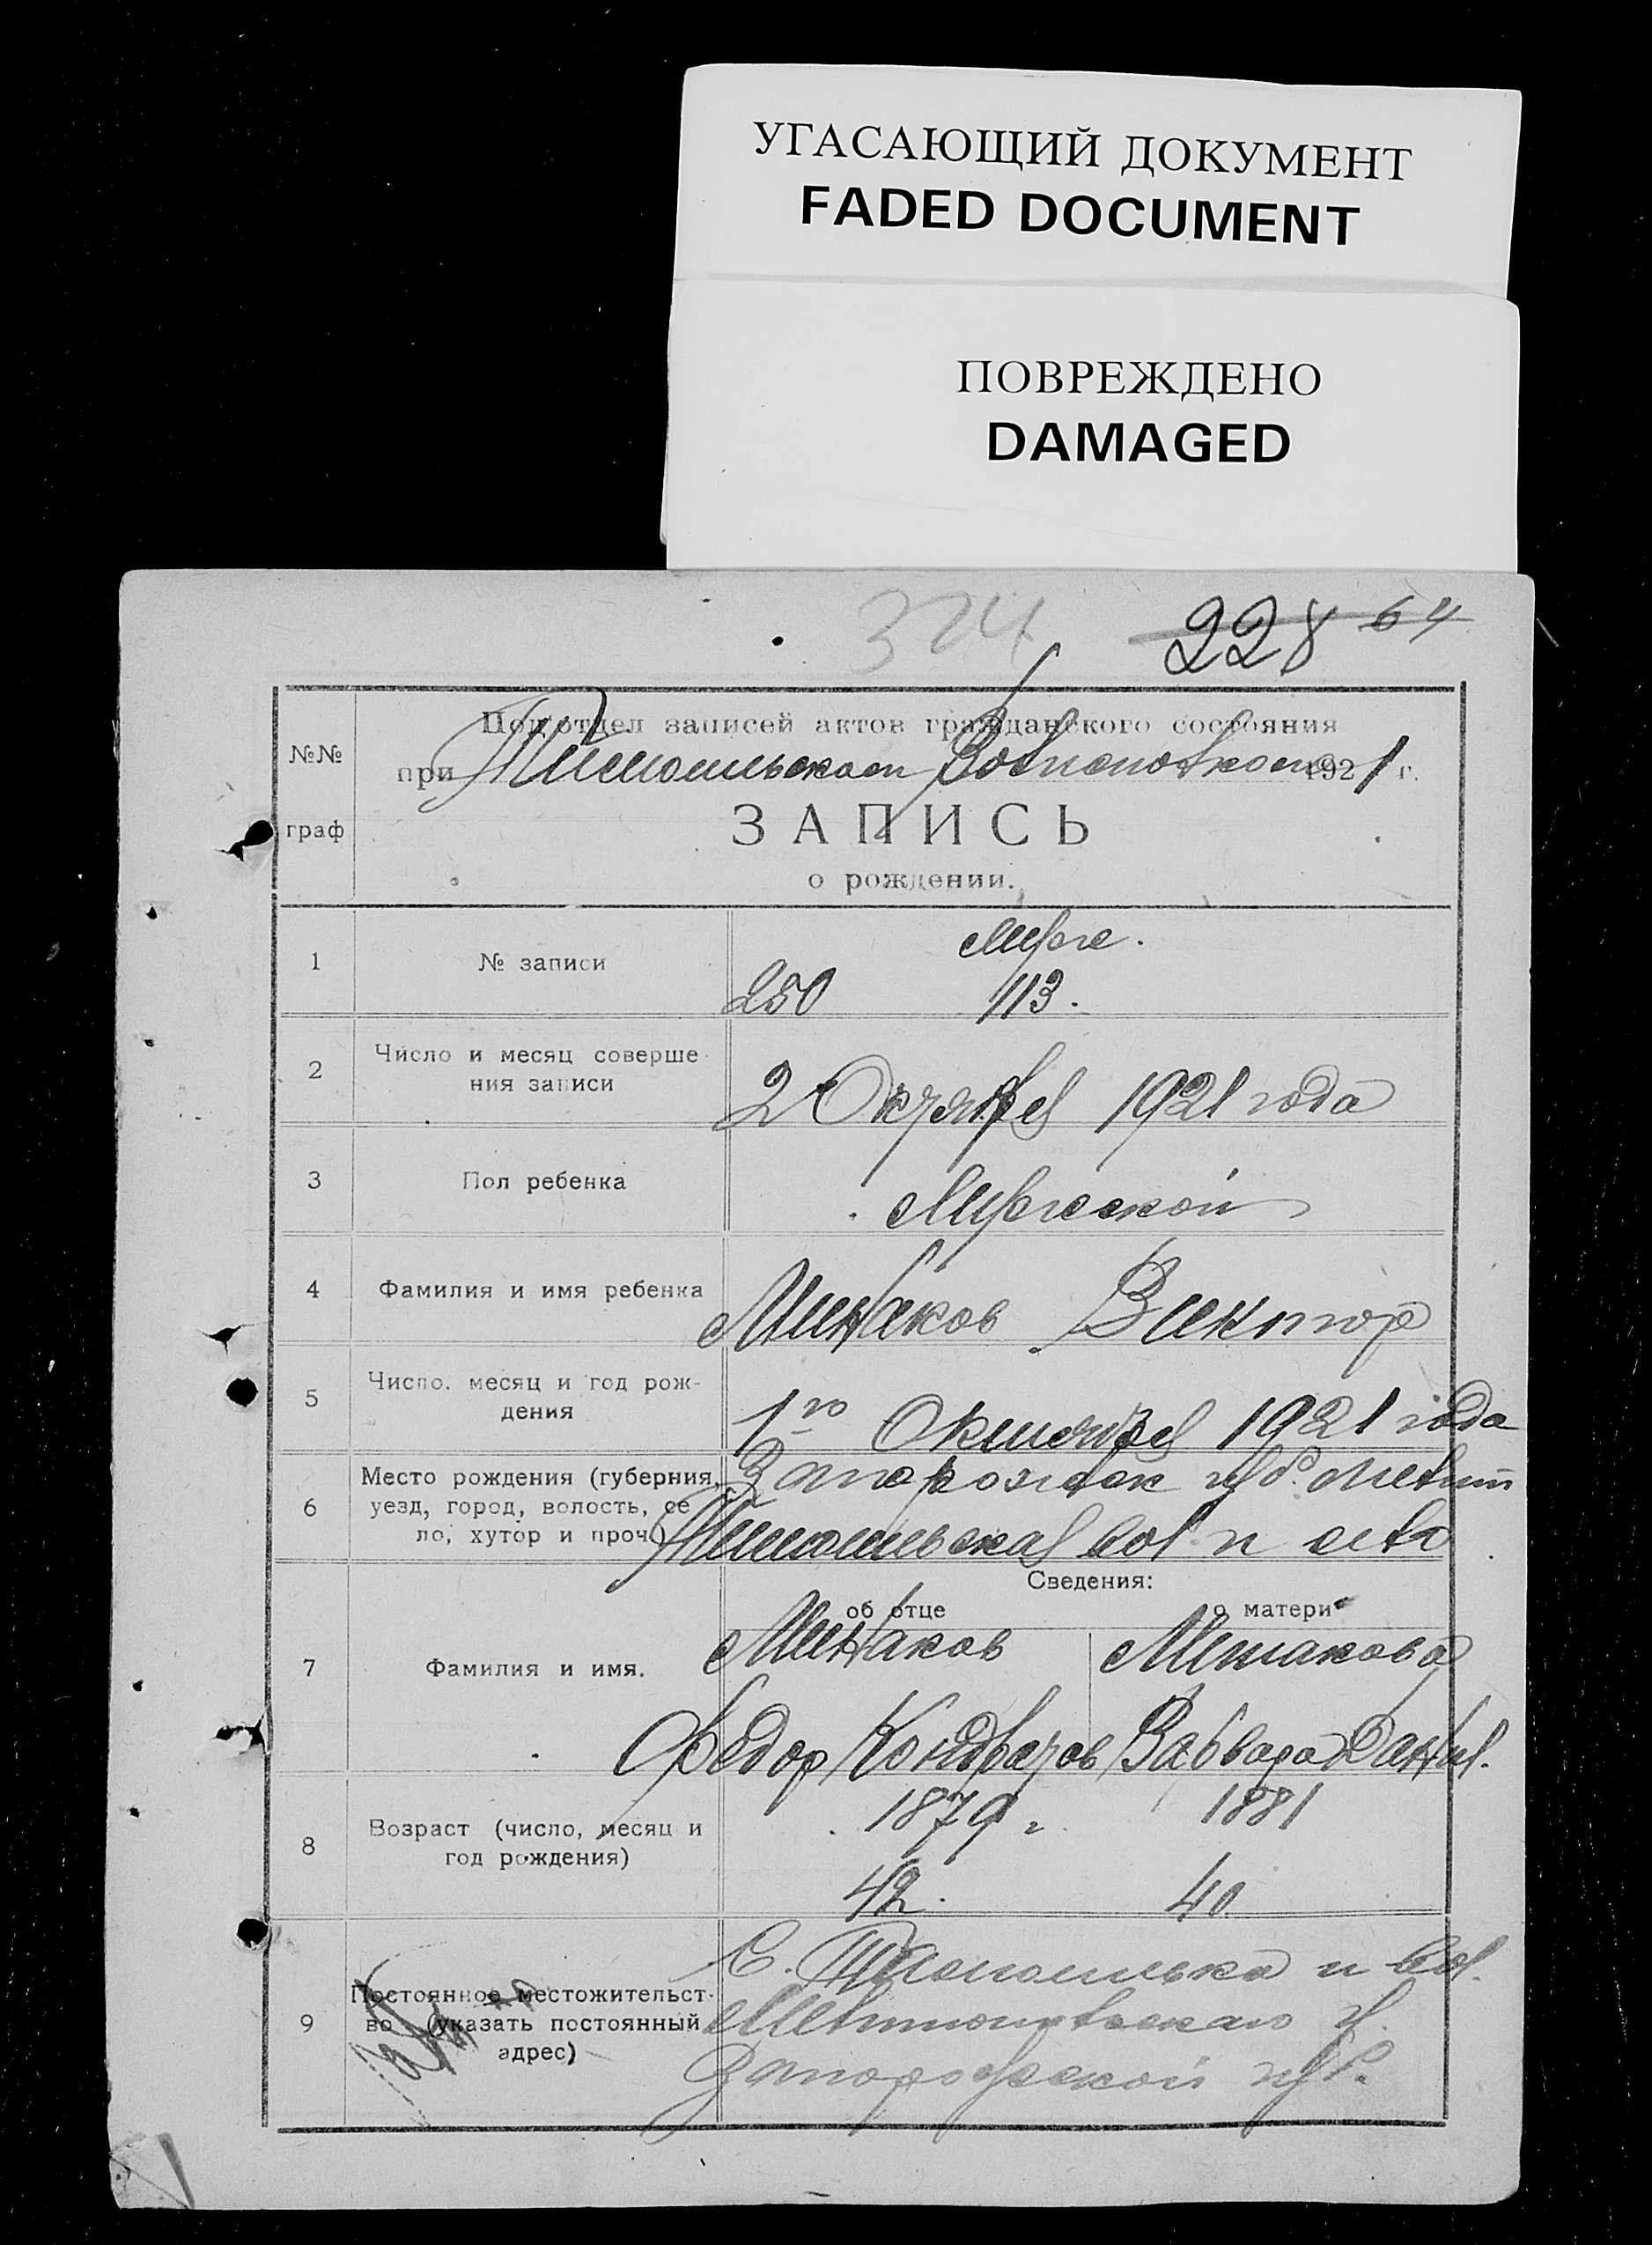 УГАСАЮЩИЙ ДОКУМЕНТ
FADED DOCUMENT
ПОВРЕЖДЕНО
DAMAGED
324 228 64
№№ граф
Подотдел записей актов гражданского состояния
при 1921 г.
ЗАПИСЬ
о рождении.
1 № записи 250 Муже. 113.
2 Число и месяц соверше
ния записи 2 Октября 1921 года
3 Пол ребенка Мужеской
4 Фамилия и имя ребенка Минаков Виктор
5 Число. месяц и год рож-
дения 1го Октября 1921 года
6 Место рождения (губерния,
уезд, город, волость, се
ло, хутор и проч.) Запорожск губ. Мелит
вол. и село
Сведения:
об отце о матери
7 Фамилия и имя. Минаков Минакова
Федор Варвара Данил.
8 Возраст (число, месяц и
год рождения) 1879 г. 1881
42. 40
9 Постоянное местожительст-
во (указать постоянный
адрес) С. и вол.
Мелитопольскаго у.
Запорожской губ.